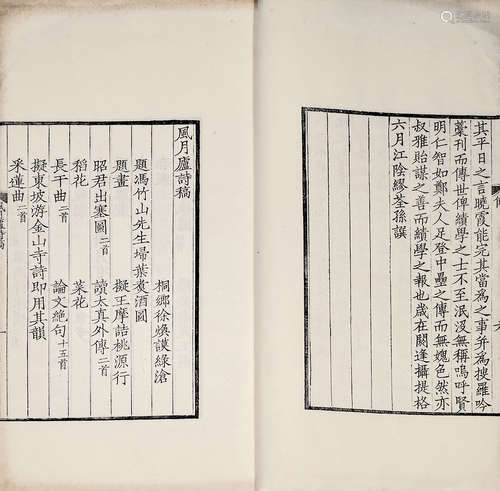 其平日之言曉霞能完其當為之事并為搜羅吟
藁刊而傳世俾績學之士不至泯沒無稱嗚呼賢
明仁智如鄭夫人足登中壘之傳而無媿色然亦
叔雅貽謀之善而績學之報也歲在閼逢攝提格
六月江陰繆荃孫譔
風月廬詩稿
桐鄉徐煥謨綠滄
題馮竹山先生埽葉煑酒圖
題畫 擬王摩詰桃源行
昭君出塞圖二首 讀太真外傳二首
稻花 菜花
長干曲二首 論文絕句十五首
擬東坡游金山寺詩即用其韻
采蓮曲二首